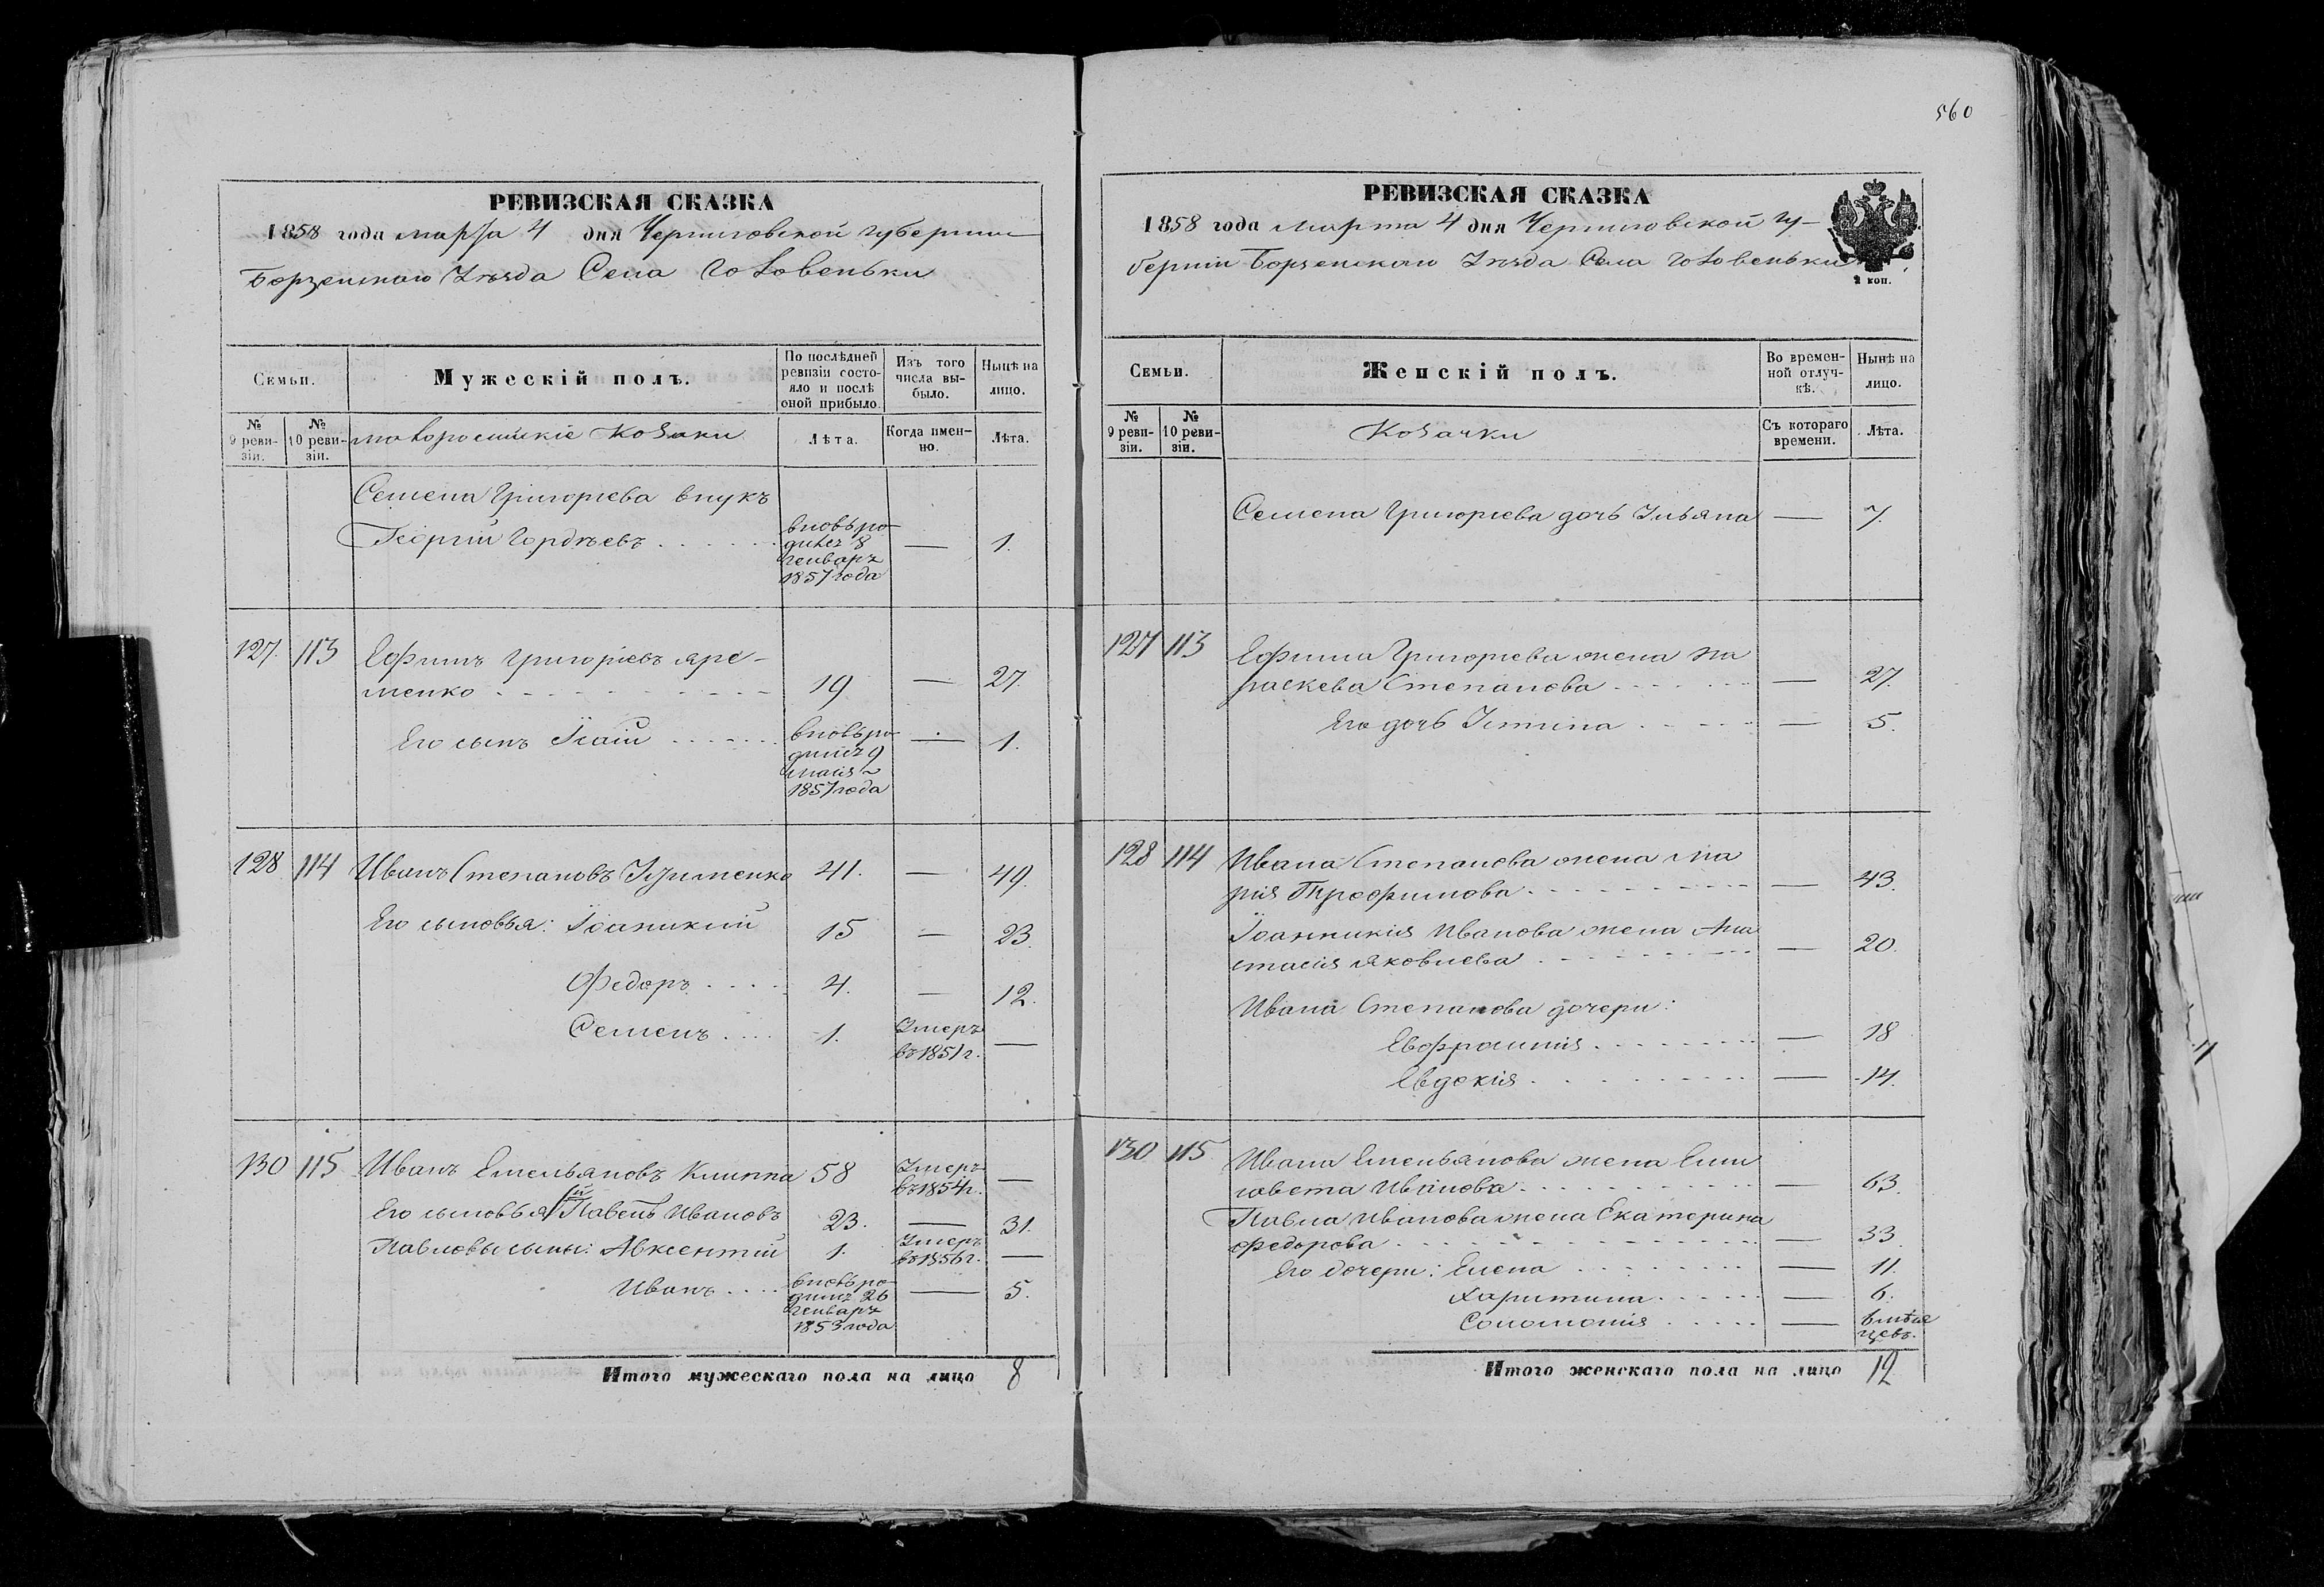 560
РЕВИЗСКАЯ СКАЗКА
1858 года марта 4 дня Черниговской губернии
Борзенскаго Уѣзда Села Головеньки
Семьи.
Мужескій полъ.
По послѣдней ревизіи состояло и послѣ оной прибыло.
Изъ того числа выбыло.
Нынѣ на лицо.
№ 9 ревизіи.
№ 10 ревизіи.
малороссійскіе Козаки
Лѣта.
Когда именно.
Лѣта.
Семена Григорьева внукъ
Георгій Гордѣевъ
вновь родился 8 генваря 1857 года
—
1.
127.
113
Ефимъ Григорьевъ Яременко
19
—
27.
Его сынъ Исаій
вновь родился 9 маія 1857 года
—
1.
128
114
Иванъ Степановъ
41.
—
49.
Его сыновья: Іоанникій
15
—
23.
Федоръ
4.
—
12.
Семенъ
1.
Умеръ въ 1851 г.
—
130
115
Иванъ Емельяновъ Клиппа
58
Умеръ въ 1854 г.
—
Его сыновья: Павелъ Ивановъ
23.
—
31.
Павловы сыны: Авксентій
1.
Умеръ въ 1856 г.
—
Иванъ
вновь родился 26 генваря 1853 года
—
5.
Итого мужескаго пола на лицо 8
РЕВИЗСКАЯ СКАЗКА
1858 года Марта 4 дня Черниговской гу-
берніи Борзенскаго Уѣзда Села Головеньки
2 коп.
Семьи.
Женскій полъ.
Во временной отлучкѣ.
Нынѣ на лицо.
№ 9 ревизіи.
№ 10 ревизіи.
Козачки
Съ котораго времени.
Лѣта.
Семена Григорьева дочь Ульяна
—
7.
127
113
Ефима Григорьева жена Па
раскева Степанова
—
27.
Его дочь Устина
—
5.
128
114
Ивана Степанова жена Ма
рія Трофимова
—
43.
Іоанникія Иванова жена Ана
стасія Яковлева
—
20.
Ивана Степанова дочери:
Евфросинія
—
18
Евдокія
—
14.
130
115
Ивана Емельянова жена Ели
савета Иванова
—
63.
Павла Иванова жена Екатерина
Федорова
—
33
Его дочери: Елена
—
11.
Харитина
—
6.
Соломонія
—
6 мѣся
цевъ.
Итого женскаго пола на лицо 12